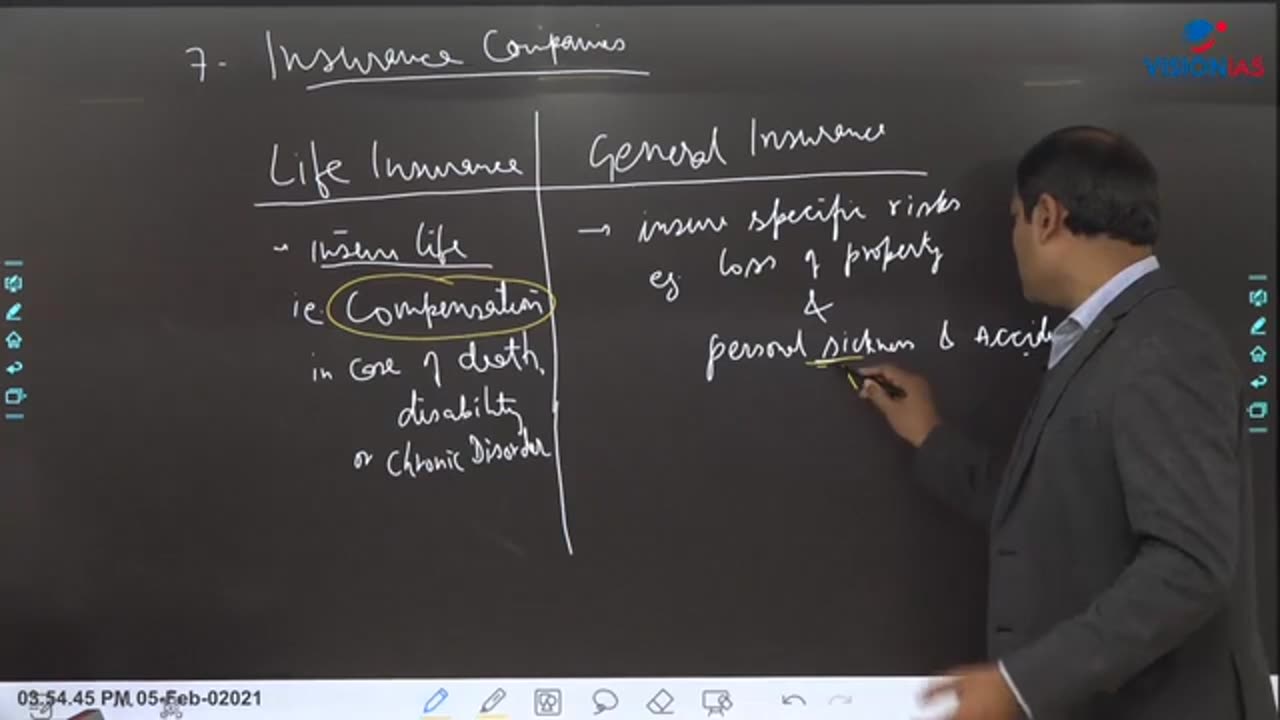 VISIONIAS
7. Insurance Companies
Life Insurance
General Insurance
- insure life
i.e. Compensation
in case of death,
disability
or Chronic Disorder
→ insure specific risks
eg. loss of property
&
personal sickness & Accide
03.54.45 PM 05-Feb-02021